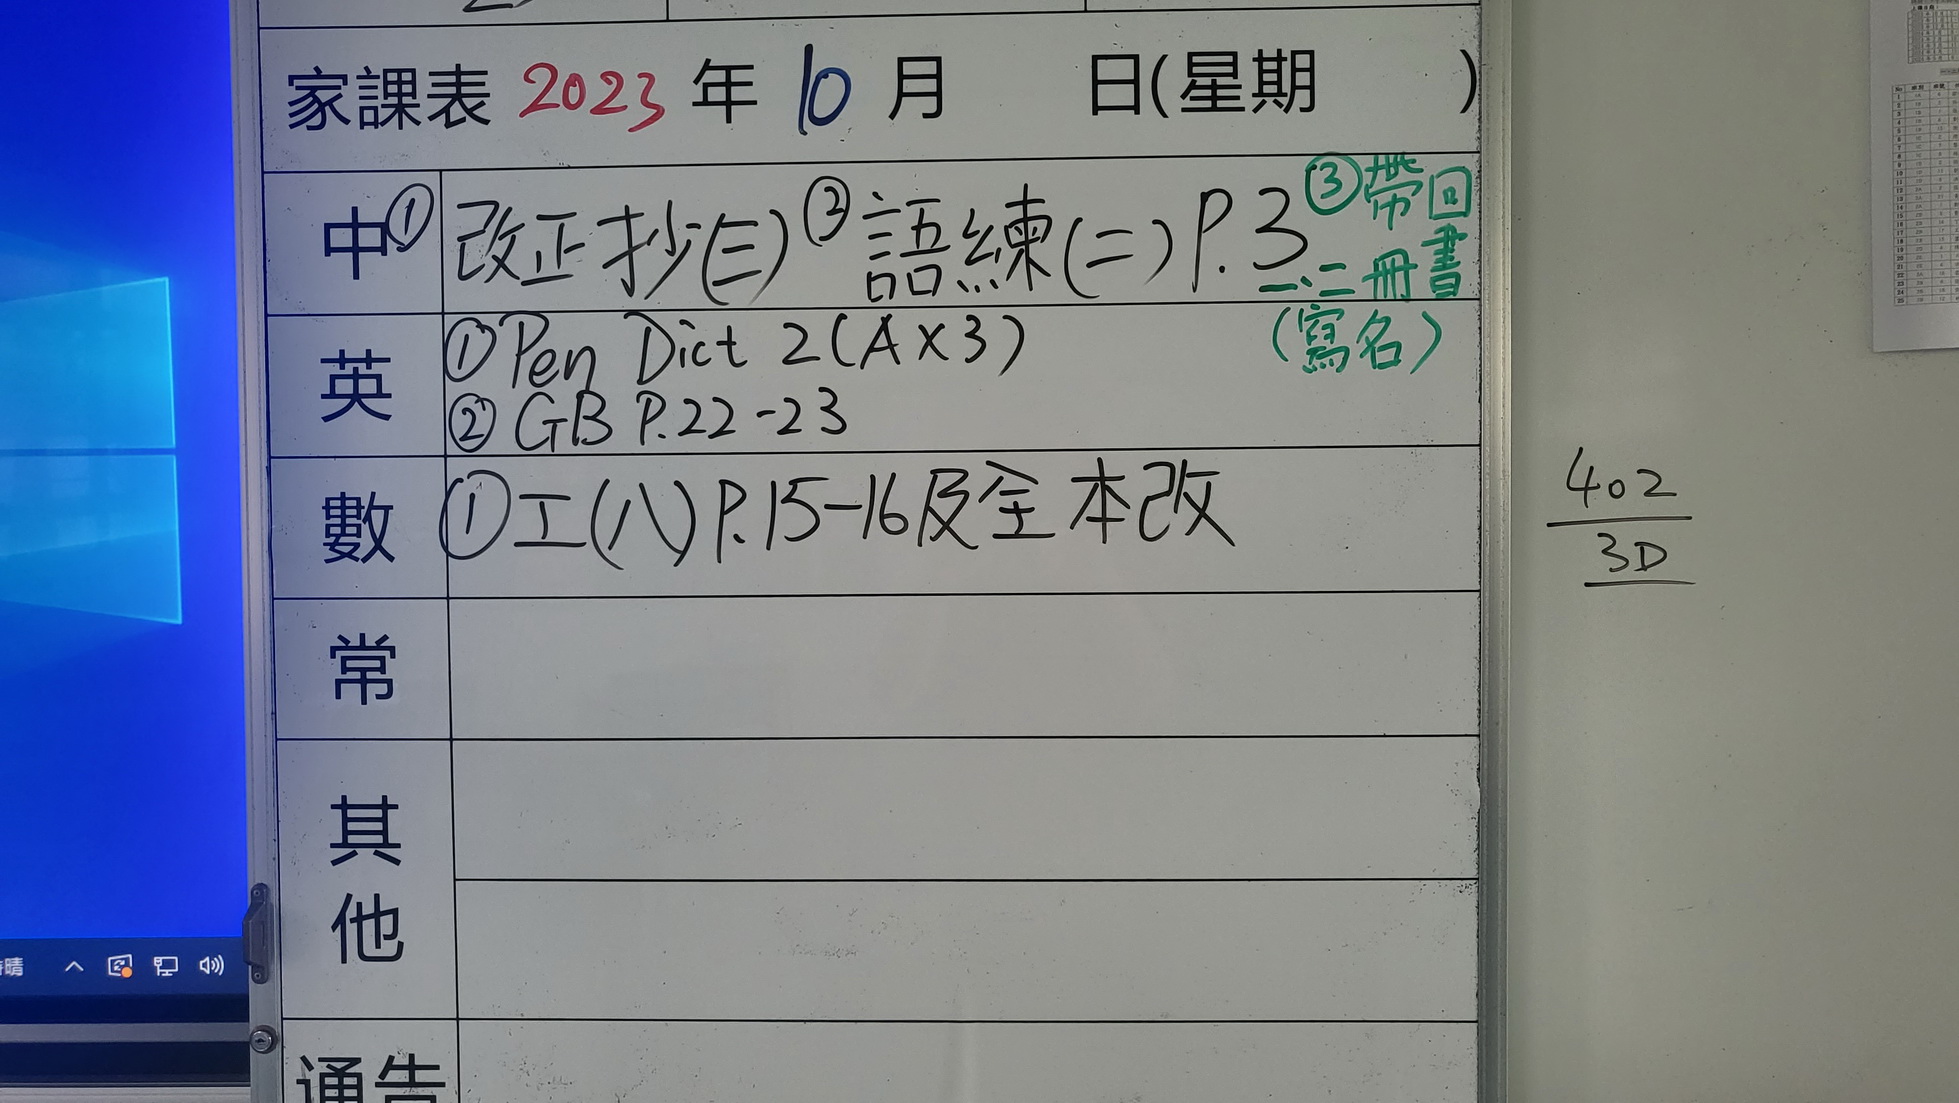 家課表 2023 年 10 月 日(星期 )
中 ① 改正抄(三) ② 語練(二) P.3 ③帶回
一、二冊書
(寫名)
英 ① Pen Dict 2 (A×3)
② GB P.22-23
數 ① 工(八) P.15-16及全本改
常
其他
通告
402
3D
晴